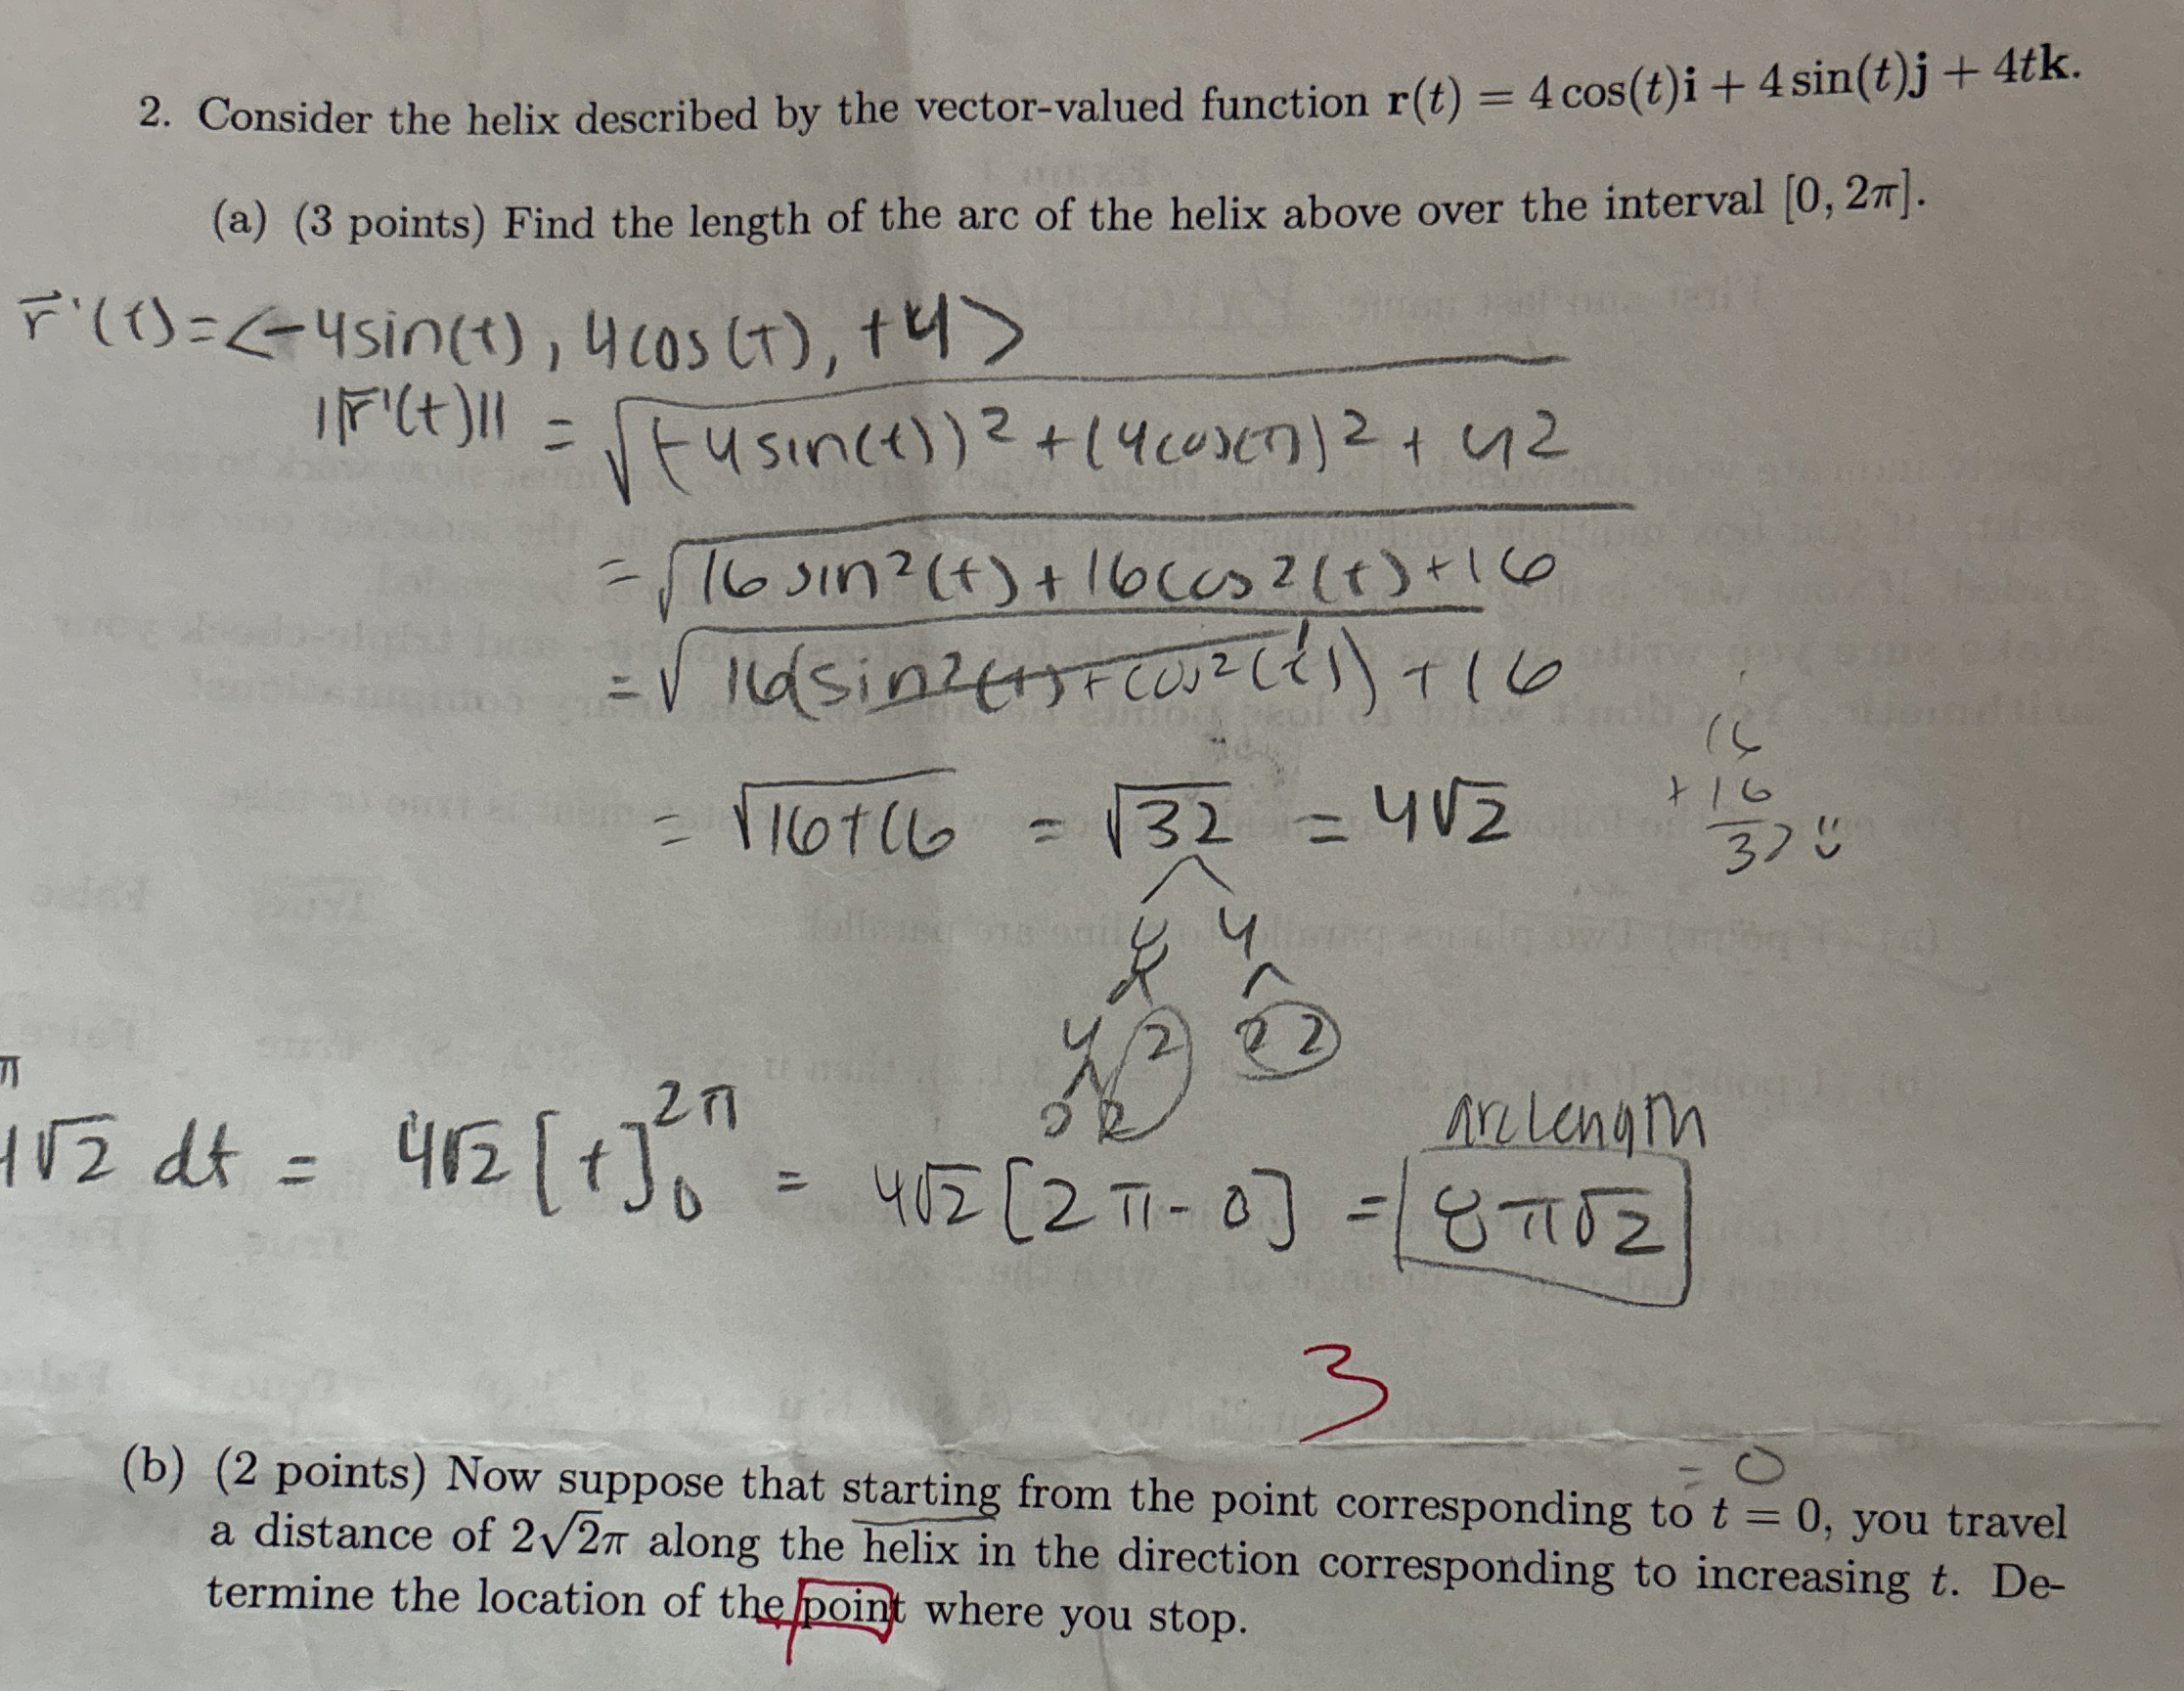 2. Consider the helix described by the vector-valued function r(t) = 4 cos(t)i + 4 sin(t)j + 4tk.
(a) (3 points) Find the length of the arc of the helix above over the interval [0, 2π].
r⃗'(t) = <-4sin(t), 4cos(t), +4>
||r⃗'(t)|| = √((-4sin(t))² + (4cos(t))² + 4²)
= √(16sin²(t) + 16cos²(t) + 16)
= √(16(sin²(t) + cos²(t)) + 16)
1
= √(16+16) = √32 = 4√2
16
+16
32 :)
4
4 2 2 2
2 2
π
4√2 dt = 4√2 [t]₀^2π = 4√2 [2π - 0] = 8π√2
arclength
3
= 0
(b) (2 points) Now suppose that starting from the point corresponding to t = 0, you travel
a distance of 2√2π along the helix in the direction corresponding to increasing t. De-
termine the location of the point where you stop.